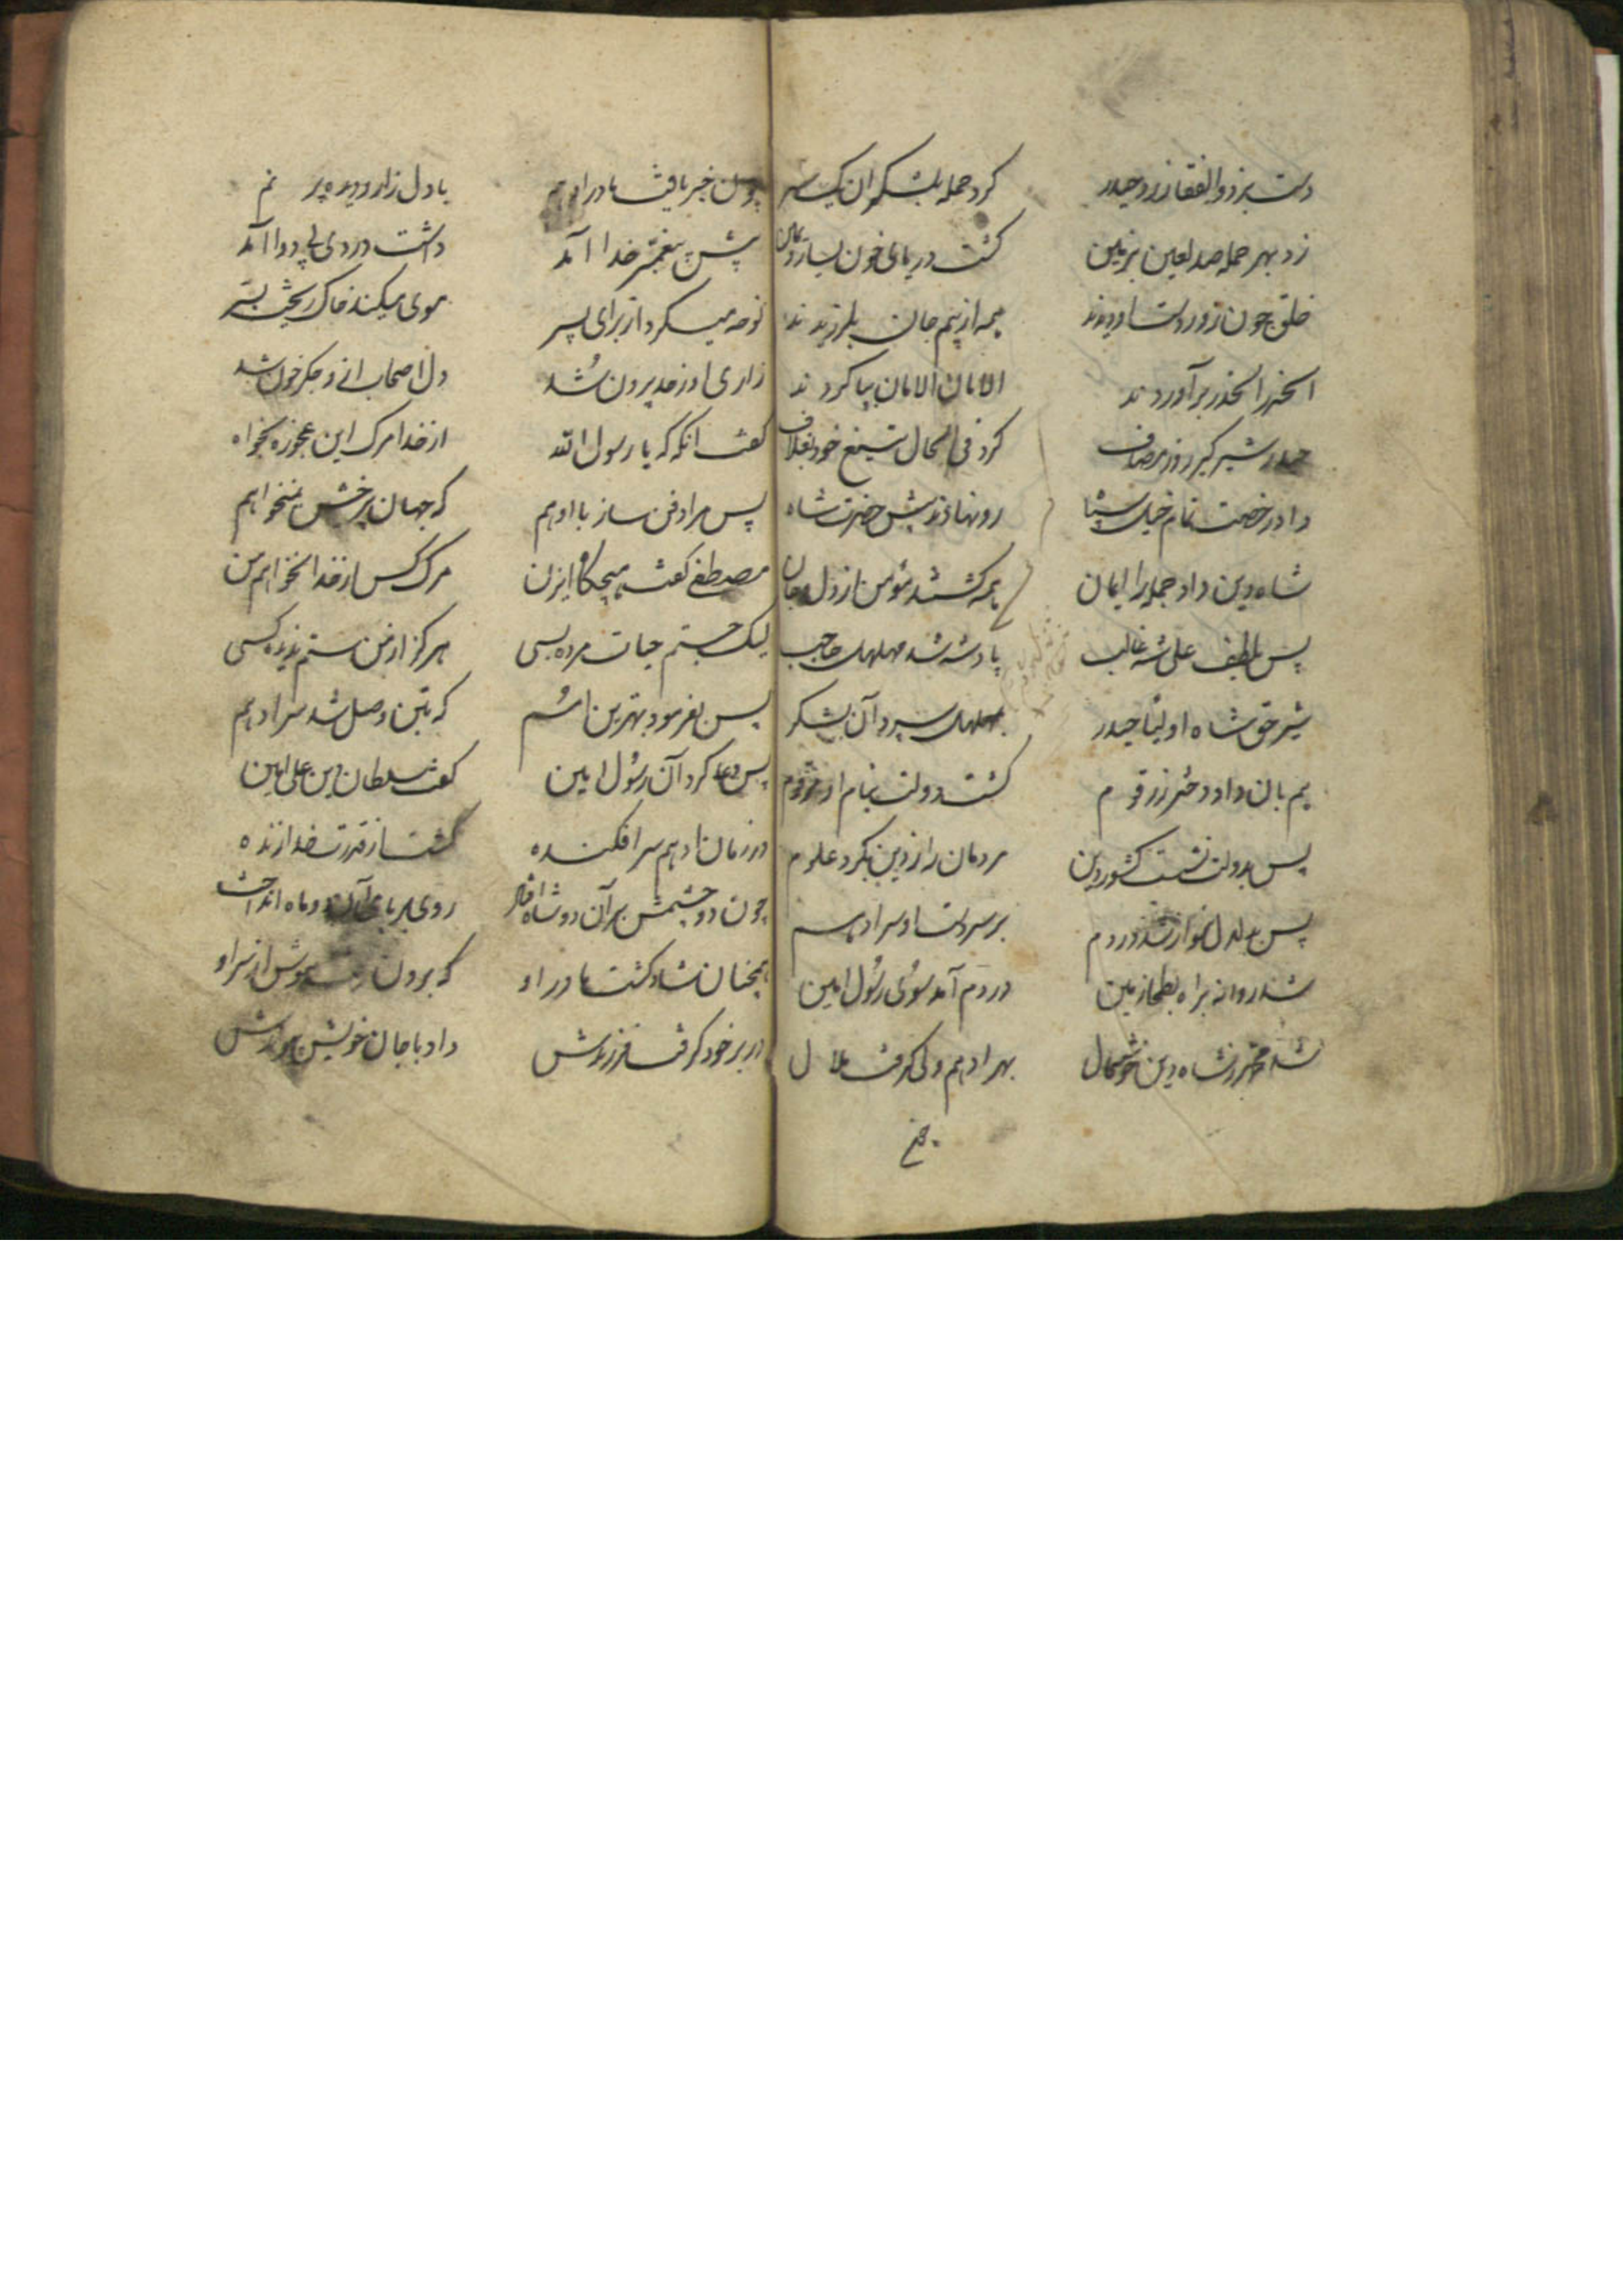 دست بزد ذوالفقار زد حیدر کرد حمله بلشکر آن یک سر
زد بهر حمله صد لعین بزمین گشت دریای خون یسار و یمین
خلق چون زور دست او دیدند همه از بیم جان بلرزیدند
الحذر الحذر برآوردند الامان الامان بپا کردند
حیدر شیر گیر روز مصاف کرد فی الحال تیغ خود بغلاف
داد رخصت تمام خیل سپاه رو نهادند پیش حضرت شاه
شاه دین داد جمله را ایمان همه گشتند مؤمن از دل و جان
پس بلطف علی شه غالب پادشه شد مهلهل حاجب
شیر حق شاه اولیا حیدر بمهلهل سپرد آن لشکر
هم بآن داد دختر زرقوم گشت دولت تمام او
پس بدولت نشست کشور دین مردمان را ز دین بکرد علوم
پس بدلدل سوار شد در دم بر سر دست او سر ادهم
شد روانه براه بطحا زمین در دم آمد سوی رسول امین
شد مخبر ز شاه دین خوشحال بهر ادهم ولی گرفت ملال
چون خبر یافت مادر ادهم با دل زار و دیده پر نم
پیش پیغمبر خدا آمد داشت دردی پی دوا آمد
نوحه میکرد از برای پسر موی میکند خاک ریخت بسر
زاری او ز حد برون شد دل اصحاب از و جگر خون شد
گفت انگه که یا رسول الله از خدا مرگ این عجوزه بخواه
پس مرا دفن ساز با ادهم که جهان بی رخش نمیخواهم
مصطفی گفت هیچگاه ایزن مرگ کس از خدا نخواهم من
لیک جستم حیات مرده بسی هرگز از من ستم ندیده کسی
پس بفرمود بهترین امم که بتن وصل شد سر ادهم
پس دعا کرد آن رسول امین گفت سلطان دین علی امین
در زمان ادهم سر افکنده گشت از قدرت خدا زنده
چون دو چشمش بر آن دو شاه افتاد روی بر پای آن دو ماه انداخت
همچنان شاد گشت مادر او که برون رفت هوش از سر او
در بر خود گرفت فرزندش داد با جان خویش پیوندش